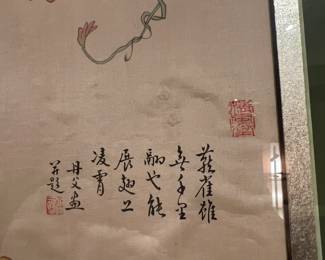 燕雀雖
無千里
翮也能
展翅上
凌霄
丹父畫
并題